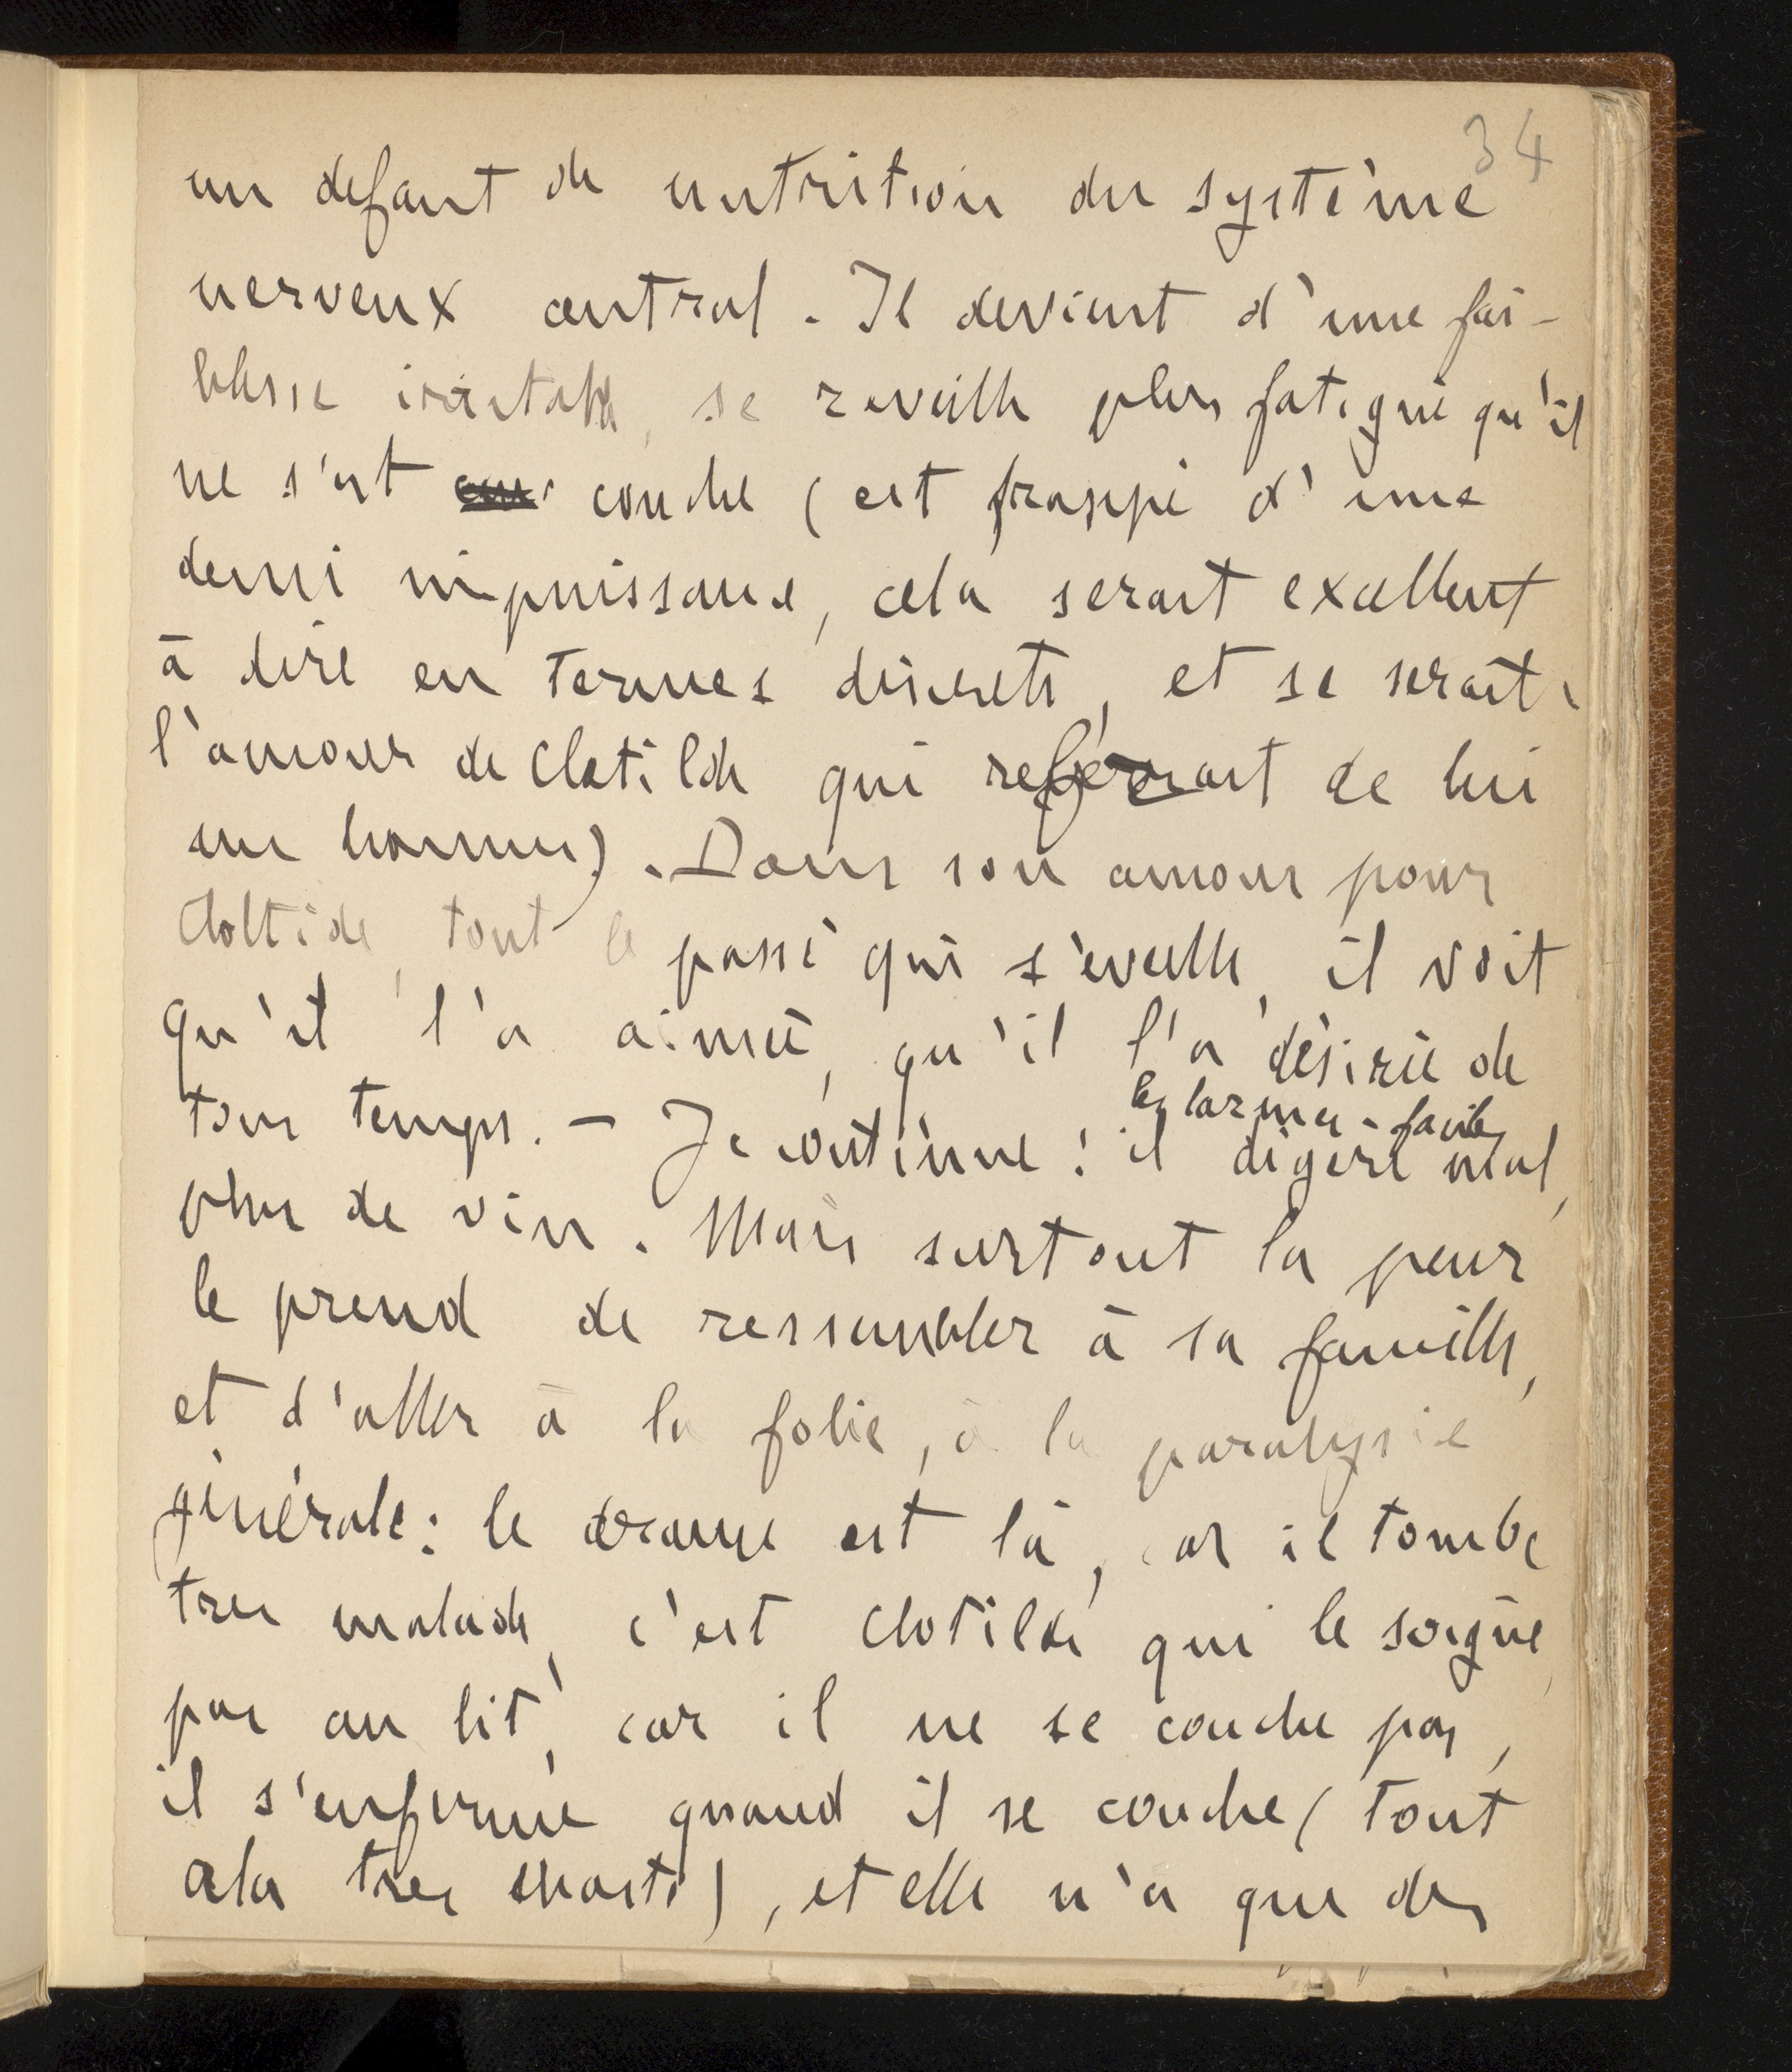 34
un defaut de nutrition du système
nerveux central. Il devient d'une fai-
blesse irritable, se reveille plus fatigué qu'il
ne s'est couché (est frappé d'une
demi impuissance, cela serait excellent
à dire en termes discrets, et se serait
l'amour de Clotilde qui referait de lui
un homme). Dans son amour pour
Cloltide, tout le passé qui s'éveille, il voit
qu'il l'a aimée, qu'il l'a désirée de
tous temps. — Je continue : il digère mal,
les larmes faciles
plus de vin. Mais surtout la peur
le prend de ressembler à sa famille,
et d'aller à la folie, à la paralysie
générale : le drame est là, car il tombe
tres malade, c'est Clotilde qui le soigne,
pas au lit, car il ne se couche pas,
il s'enferme quand il se couche (tout
cela tres chaste), et elle n'a que des